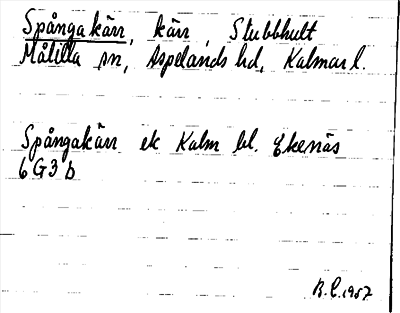 Spångakärr, kärr, Stubbhult
Målilla sn, Aspelands hd, Kalmar l.
Spångakärr ek Kalm bl. Ekenäs
6G3b
B.E. 1957